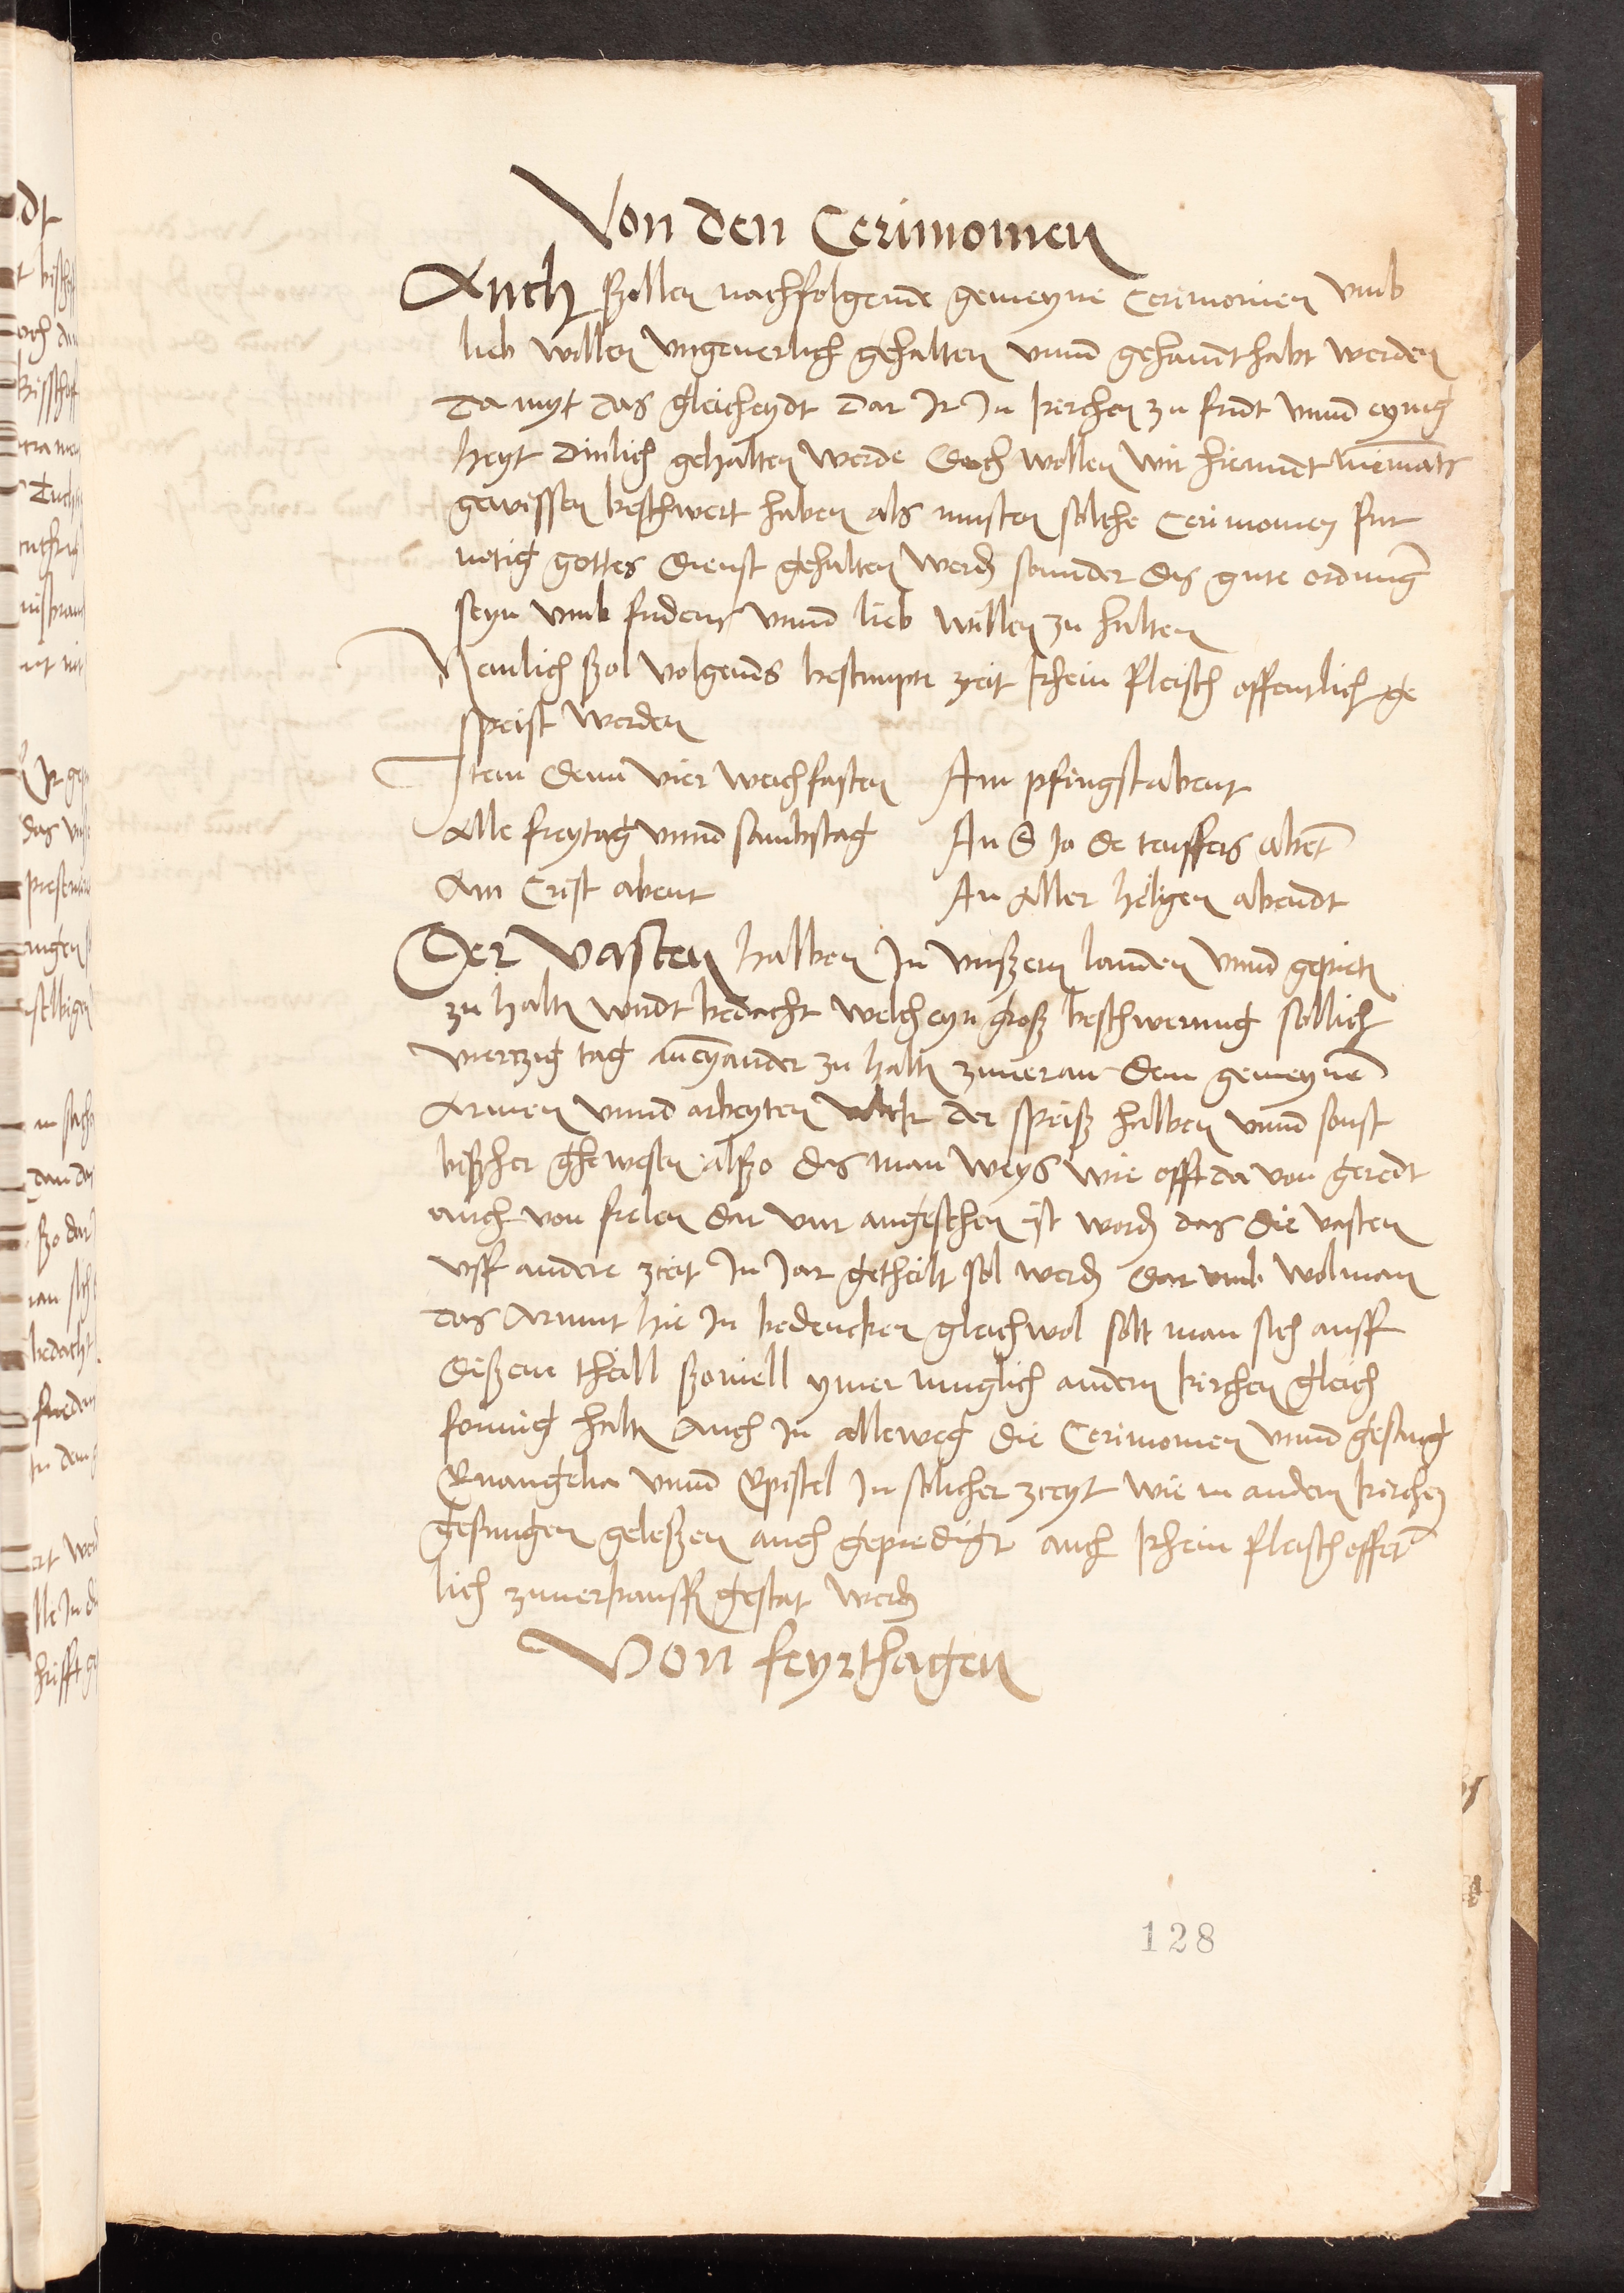 Von den Cerimonien
Auch ßollen nachfolgende gemeyne Cerimonien vmb
lieb willen vngeuerlich gehalten vnnd gehannthabt werden
Da myt das gleicheydt dar Jr Jn kirchen zu fridt vnnd eynig
heyt dinlich gehalten werde Doch wollen wir hiemidt niemants
gewissen beschwert haben als musten solche Cerimonien fur
notig gottes dienst gehalten werd sonnder das gute ordnung
seyn vmb fridens vnnd lieb willen zu halten
Nemlich ßol volgends bestimpte zeit khein fleisch offentlich ge
speist werden
Item denn vier weichfasten Am pfingstabent
Alle freytag vnnd sambstag An S Jo de teuffers abent
Am Crist abent An Aller heligen abendt
Der Vasten halben Jn vnßern landen vnnd gepiet
zu halt wirdt bedacht welch eyn groß beschwerung sollich
viertzig tag aneynander zu halt zuueran dem gemeynen
Armen vnnd arbeyten volck der speiß halben vnnd sonst
bißher ghewesen alßo das man weys wie offt da von geredt
auch von fielen dar vur angesehen ist word das die vasten
vff andere zeit Jn Jar getheilt sol werd dar vmb wol man
das Armut hie Jn bedencken gleichwol solt man sich auff
dißem theill ßouiell ymer muglich andern kirchen gleich
formig halt Auch Jn alleweg die Cerimonien vnnd gesang
Euangelia vnnd Epistel Jn solicher zceyt wie in andern kirchen
gesungen geleßen auch gepredigt auch khein fleisch offet
lich zuuerkauff gestat werd
Von feyrthagen
128